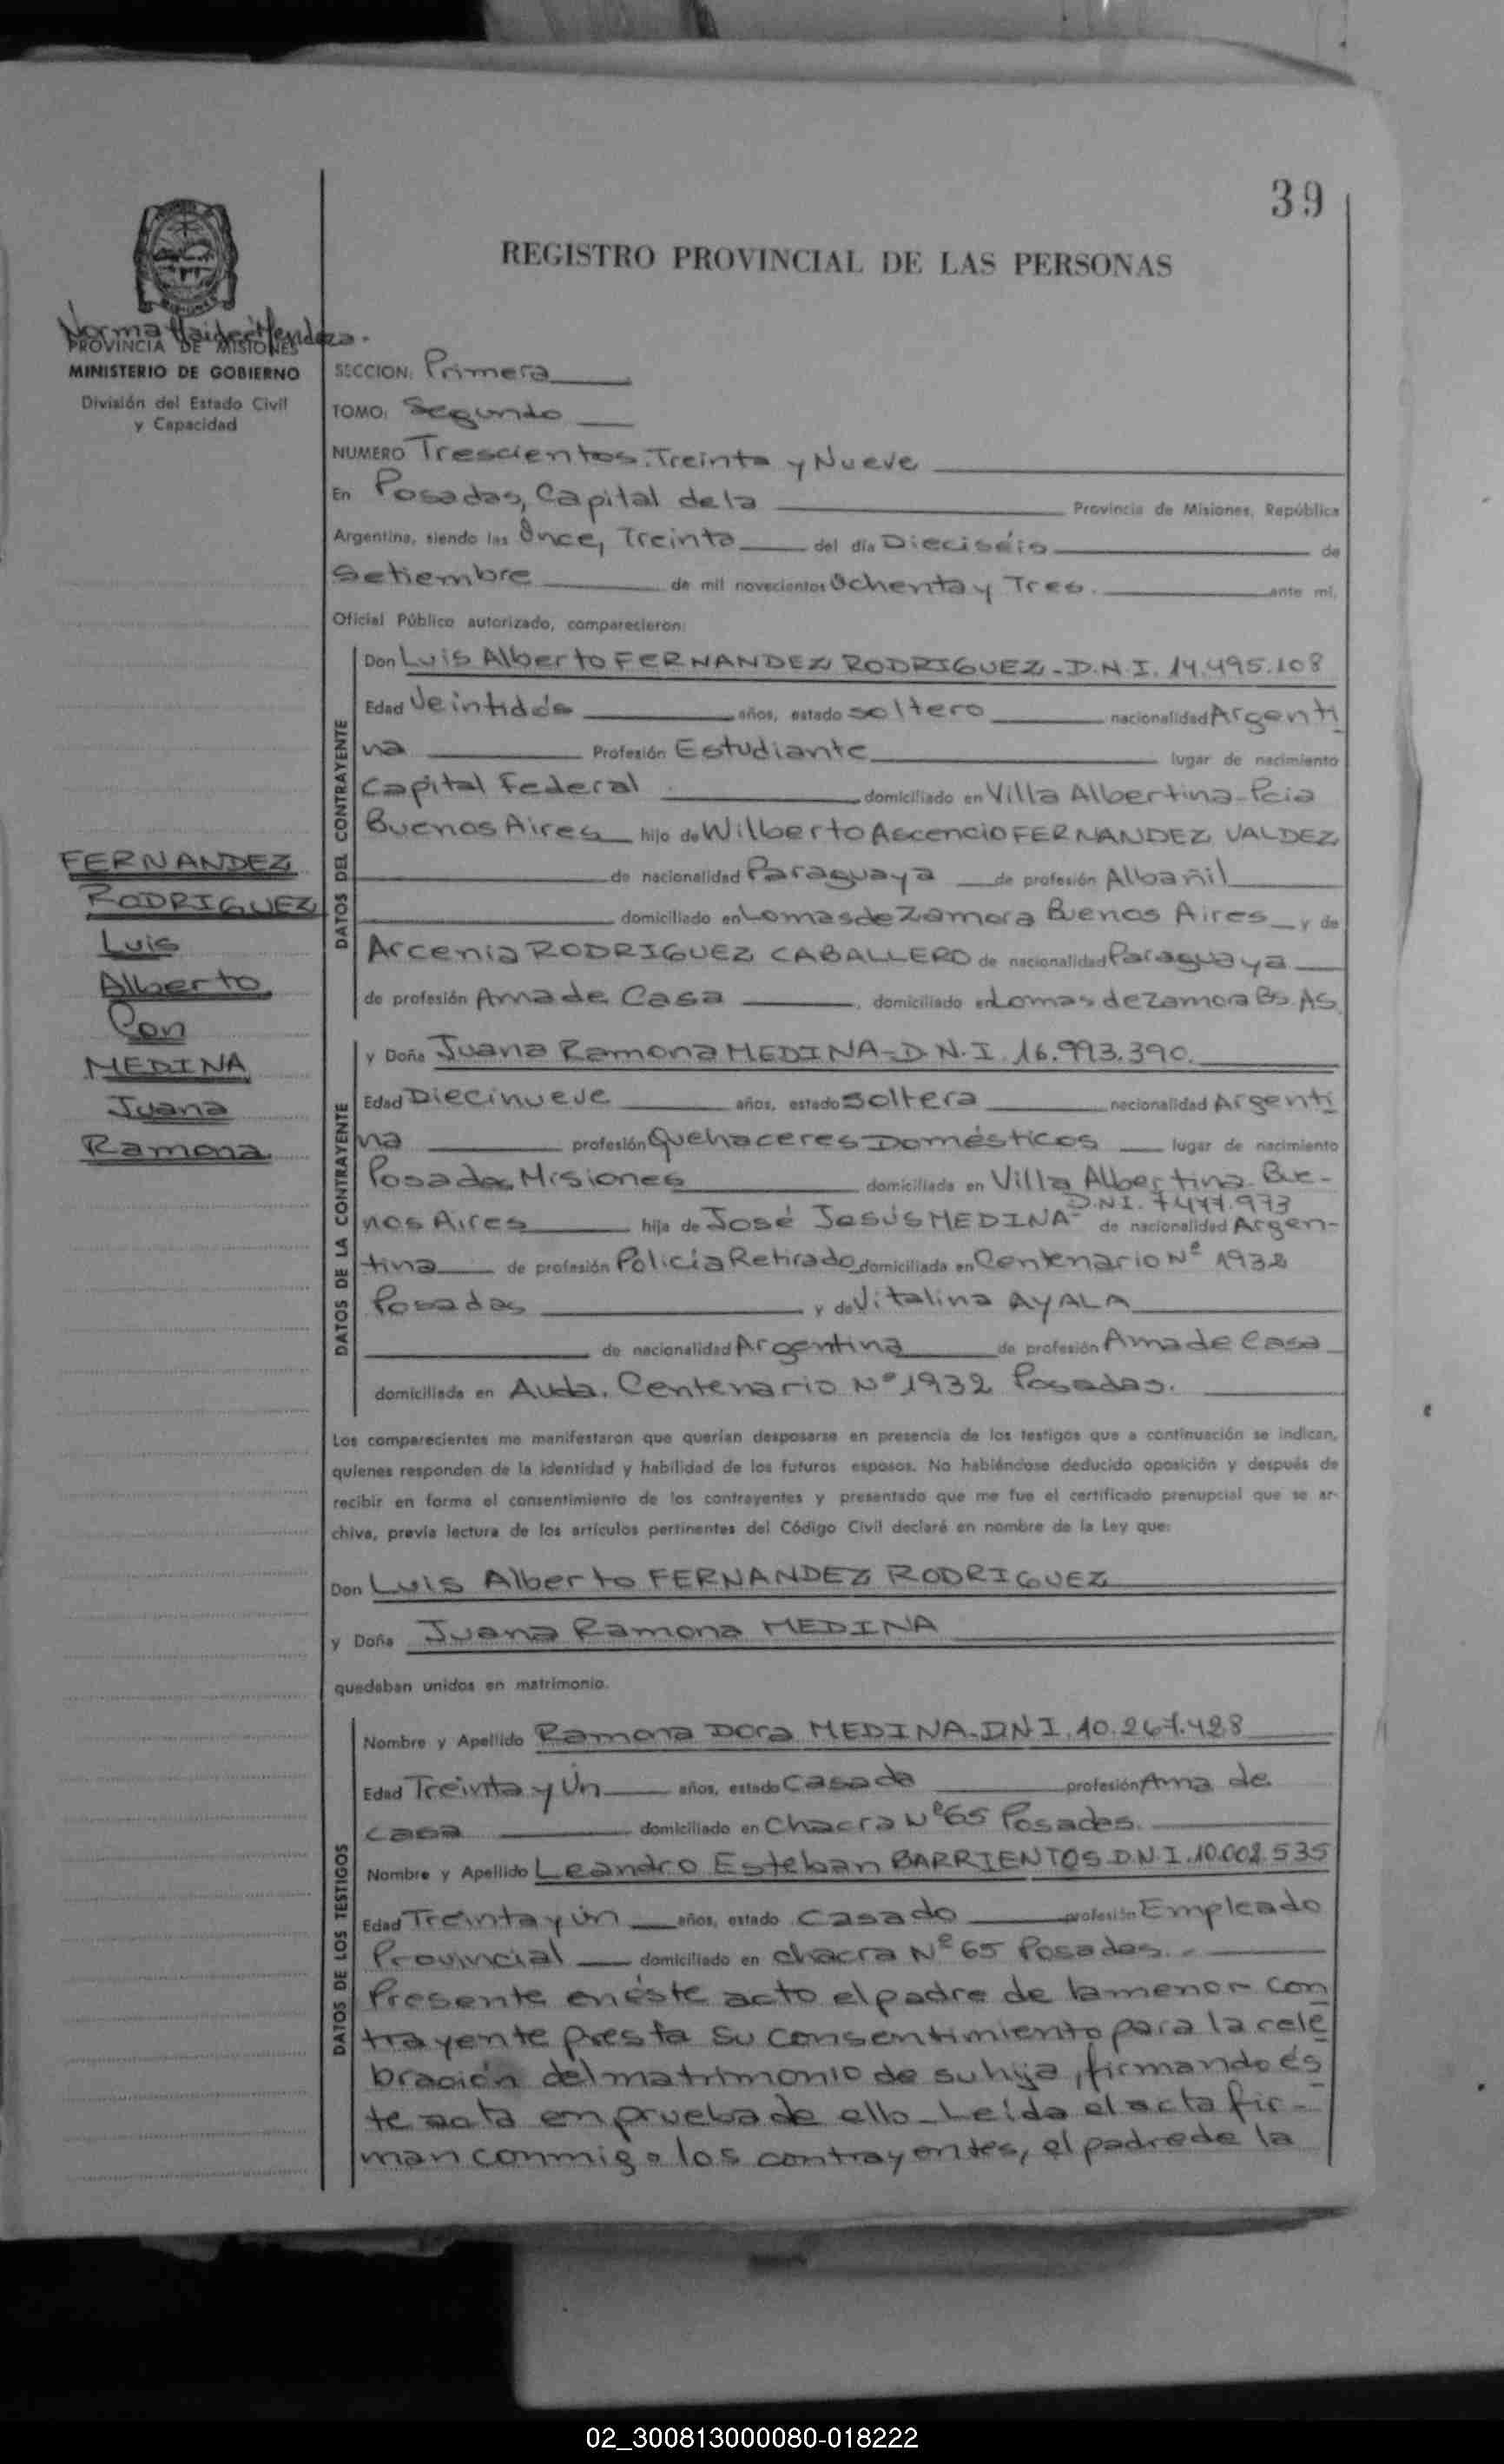 39
REGISTRO PROVINCIAL DE LAS PERSONAS
Norma Haideé Mendoza.
PROVINCIA DE MISIONES
MINISTERIO DE GOBIERNO
División del Estado Civil
y Capacidad
FERNANDEZ
RODRIGUEZ
Luis
Alberto
Con
MEDINA
Juana
Ramona
SECCION: Primera
TOMO: Segundo
NUMERO Trescientos Treinta y Nueve
En Posadas, Capital de la Provincia de Misiones, República
Argentina, siendo las Once, Treinta del día Dieciséis de
Setiembre de mil novecientos Ochenta y Tres. ante mí,
Oficial Público autorizado, comparecieron:
DATOS DEL CONTRAYENTE
Don Luis Alberto FERNANDEZ RODRIGUEZ - D.N.I. 14.495.108
Edad Veintidós años, estado soltero nacionalidad Argenti
na Profesión Estudiante lugar de nacimiento
Capital Federal domiciliado en Villa Albertina - Pcia
Buenos Aires hijo de Wilberto Ascencio FERNANDEZ VALDEZ
de nacionalidad Paraguaya de profesión Albañil
domiciliado en Lomas de Zamora Buenos Aires y de
Arcenia RODRIGUEZ CABALLERO de nacionalidad Paraguaya
de profesión Ama de Casa, domiciliado en Lomas de Zamora Bs. AS.
DATOS DE LA CONTRAYENTE
y Doña Juana Ramona MEDINA - D.N.I. 16.993.390.
Edad Diecinueve años, estado soltera nacionalidad Argenti
na profesión Quehaceres Domésticos lugar de nacimiento
Posadas Misiones domiciliada en Villa Albertina Bue-
D.N.I. 7.477.973
nos Aires hija de José Jesús MEDINA - de nacionalidad Argen-
tina de profesión Policía Retirado domiciliada en Centenario Nº 1932
Posadas y de Vitalina AYALA
de nacionalidad Argentina de profesión Ama de Casa
domiciliada en Avda. Centenario Nº 1932 Posadas.
Los comparecientes me manifestaron que querían desposarse en presencia de los testigos que a continuación se indican,
quienes responden de la identidad y habilidad de los futuros esposos. No habiéndose deducido oposición y después de
recibir en forma el consentimiento de los contrayentes y presentado que me fue el certificado prenupcial que se ar-
chiva, previa lectura de los artículos pertinentes del Código Civil declaré en nombre de la Ley que:
Don Luis Alberto FERNANDEZ RODRIGUEZ
y Doña Juana Ramona MEDINA
quedaban unidos en matrimonio.
DATOS DE LOS TESTIGOS
Nombre y Apellido Ramona Dora MEDINA - D.N.I. 10.267.428
Edad Treinta y Un años, estado Casada profesión Ama de
casa domiciliado en Chacra Nº 65 Posadas.
Nombre y Apellido Leandro Esteban BARRIENTOS D.N.I. 10.002.535
Edad Treinta y Un años, estado Casado profesión Empleado
Provincial domiciliado en chacra Nº 65 Posadas. -
Presente en éste acto el padre de la menor con
trayente presta su consentimiento para la cele
bración del matrimonio de su hija, firmando és
te acta en prueba de ello - Leída el acta fir-
man conmigo los contrayentes, el padre de la
02_300813000080-018222